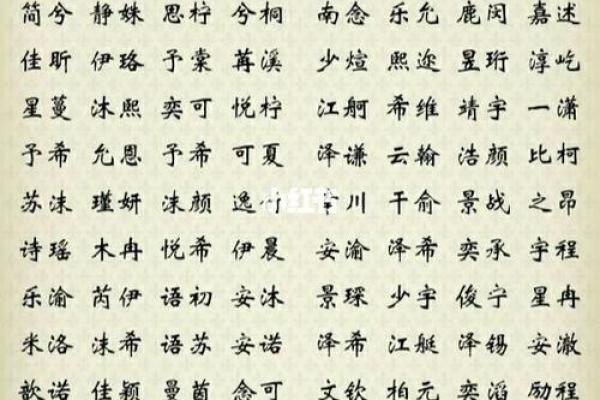 简兮 静姝 思柠 兮桐 南念 乐允 鹿闵 嘉述
佳昕 伊珞 予棠 苒溪 少煊 熙迩 昱珩 淳屹
星蔓 沐熙 奕可 悦柠 江舸 希维 靖宇 一潇
予希 允恩 予希 可夏 泽谦 云翰 浩颜 比柯
苏沫 瑾妍 沫颜 逸 川 干俞 景战 之昂
小红书
诗瑶 木冉 悦希 伊晨 安渝 泽希 奕承 宇程
乐渝 芮伊 语初 安沐 景琛 少宇 俊宁 星冉
米洛 沫希 语苏 安诺 泽希 江艇 泽锡 安澈
歆诺 佳颖 曼茵 念可 文钦 柏元 奕滔 励程